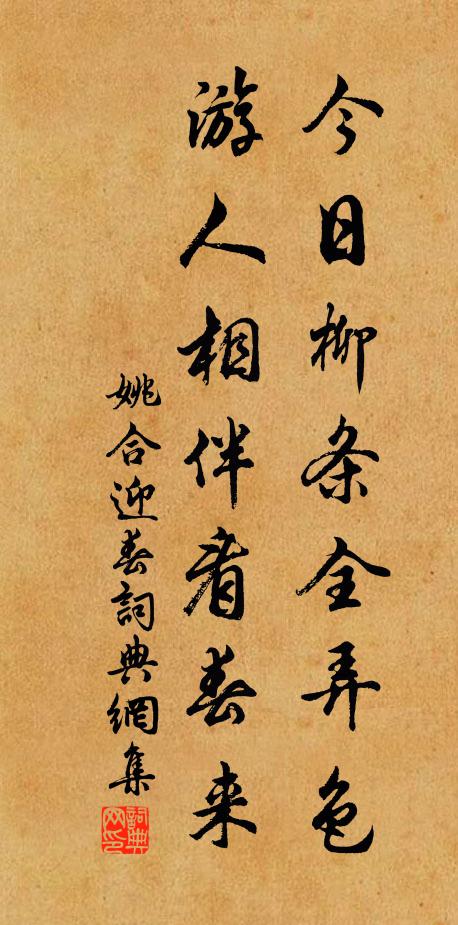 今日柳条全弄色
游人相伴看春来
姚合迎春詞典網集
詞典网印